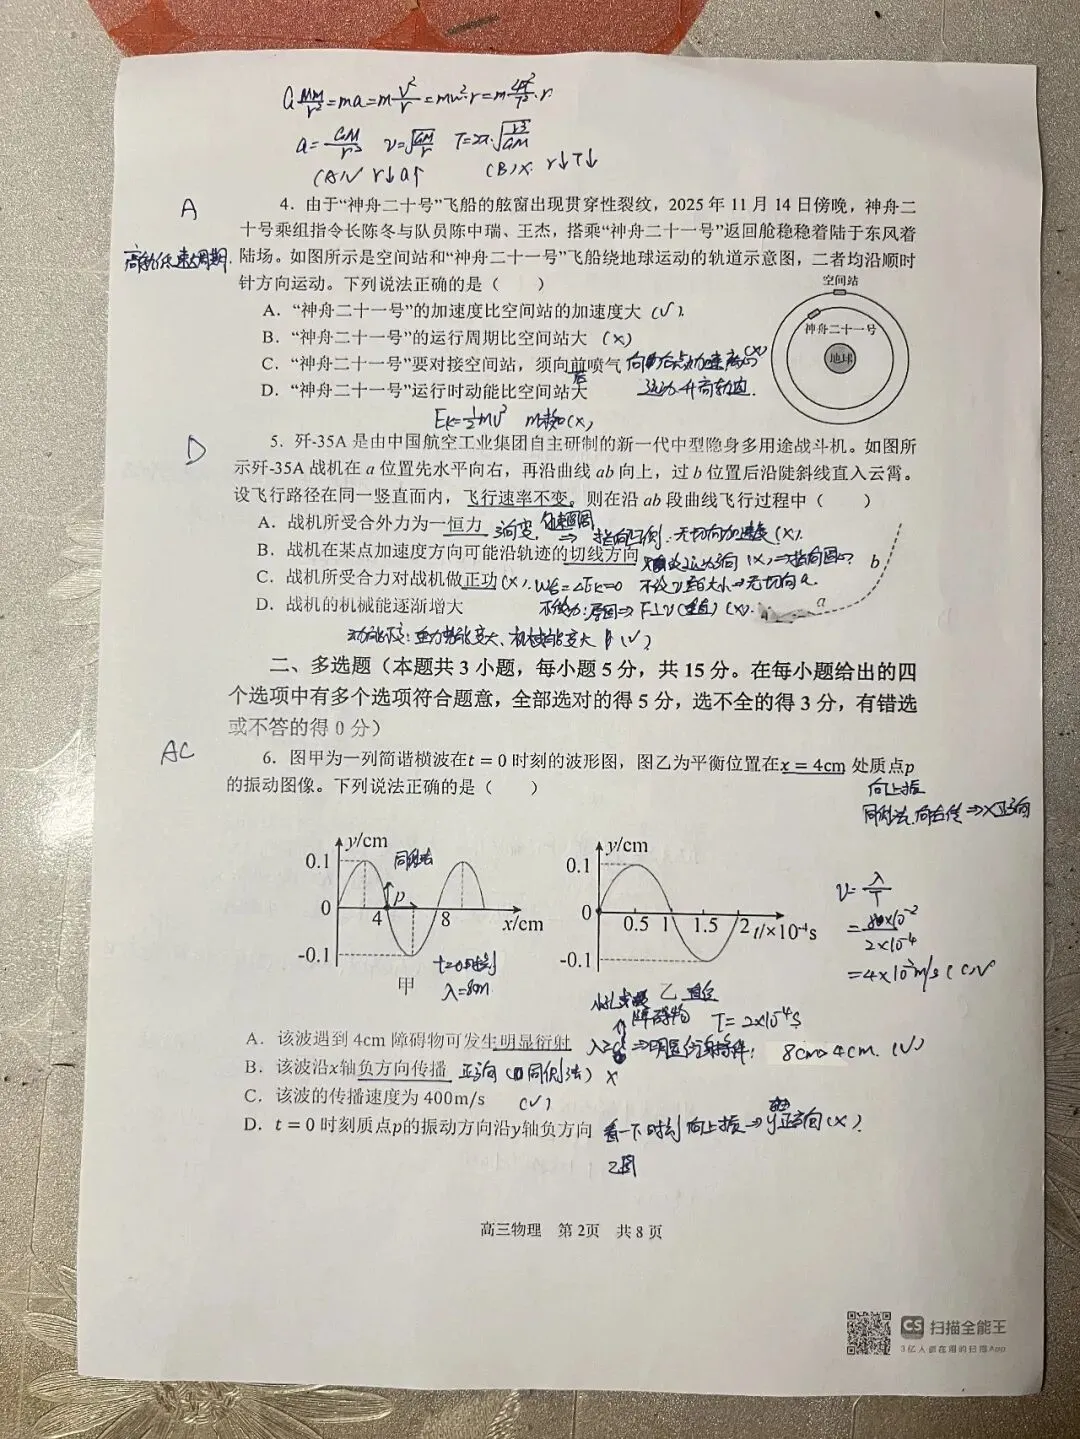 G Mm/r² = ma = m v²/r = mω²·r = m 4π²/T²·r
a = GM/r² v = √(GM/r) T = 2π·√(r³/GM)
(A)√ r↓a↑ (B)×. r↓T↓
A
4．由于“神舟二十号”飞船的舷窗出现贯穿性裂纹，2025 年 11 月 14 日傍晚，神舟二
十号乘组指令长陈冬与队员陈中瑞、王杰，搭乘“神舟二十一号”返回舱稳稳着陆于东风着
高轨低速大周期.
陆场。如图所示是空间站和“神舟二十一号”飞船绕地球运动的轨道示意图，二者均沿顺时
针方向运动。下列说法正确的是（　　）
空间站
神舟二十一号
地球
A．“神舟二十一号”的加速度比空间站的加速度大 (√).
B．“神舟二十一号”的运行周期比空间站大 (×)
C．“神舟二十一号”要对接空间站，须向前喷气
后
D．“神舟二十一号”运行时动能比空间站大
运动升高轨道.
Ek=½mv² m未知(×)
D
5．歼-35A 是由中国航空工业集团自主研制的新一代中型隐身多用途战斗机。如图所
示歼-35A 战机在 a 位置先水平向右，再沿曲线 ab 向上，过 b 位置后沿陡斜线直入云霄。
设飞行路径在同一竖直面内，飞行速率不变。则在沿 ab 段曲线飞行过程中（　　）
A．战机所受合外力为一恒力 方向变. 匀速圆周 ⇒ 指向凹侧. 无切向加速度(×).
B．战机在某点加速度方向可能沿轨迹的切线方向
C．战机所受合力对战机做正功(×). W合=ΔEk=0 不改变v的大小→无切向a.
D．战机的机械能逐渐增大
F⊥v(垂直)(×).
a
b
动能不变；重力势能变大、机械能变大 (√)
二、多选题（本题共 3 小题，每小题 5 分，共 15 分。在每小题给出的四
个选项中有多个选项符合题意，全部选对的得 5 分，选不全的得 3 分，有错选
或不答的得 0 分）
AC
6．图甲为一列简谐横波在t = 0 时刻的波形图，图乙为平衡位置在x = 4cm 处质点p
的振动图像。下列说法正确的是（　　）
向上振
同侧法.向右传⇒x正方向
y/cm
0.1
0
-0.1
4
8
x/cm
p
同侧法
t=0时刻
λ=8cm
甲
y/cm
0.1
0
-0.1
0.5 1 1.5 2 t/×10⁻⁴s
乙
T=2×10⁻⁴s
v=λ/T
=8×10⁻²/2×10⁻⁴
=4×10²m/s (C)√
障碍物
A．该波遇到 4cm 障碍物可发生明显衍射 λ≥d ⇒明显衍射条件： 8cm>4cm. (√)
B．该波沿x轴负方向传播 正方向 (同侧法) ×
C．该波的传播速度为 400m/s (√)
D．t = 0 时刻质点p的振动方向沿y轴负方向 看一下时刻 向上振→y正方向(×).
乙图
高三物理　第 2页　共 8 页
CS 扫描全能王
3亿人都在用的扫描App